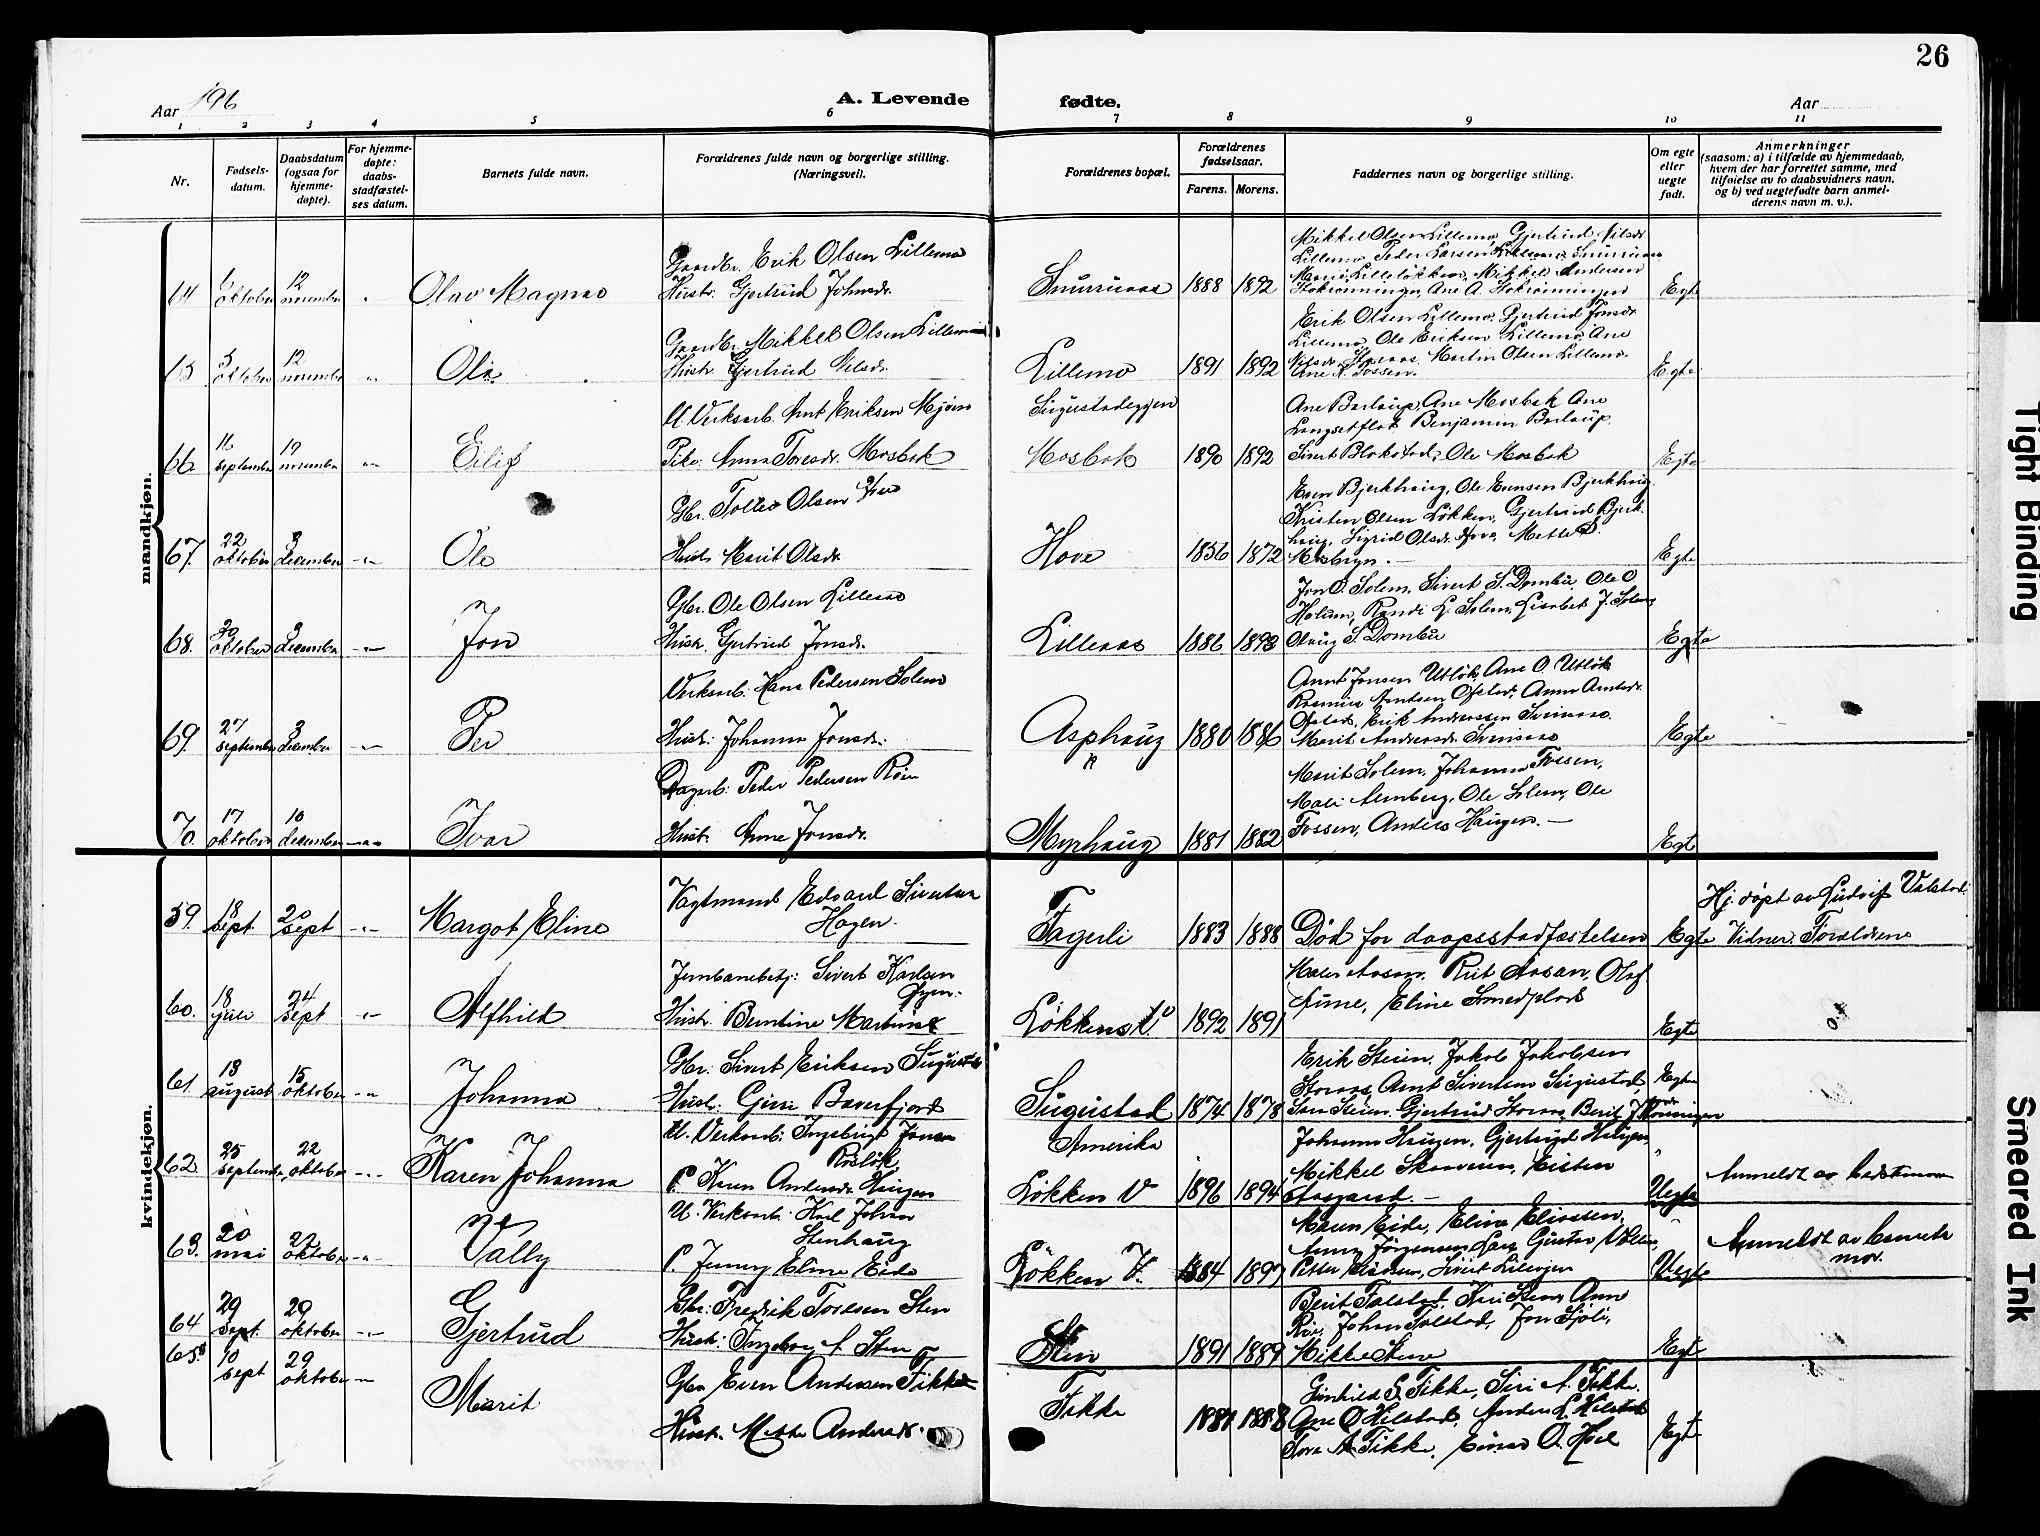 26
Aar 196
A. Levende
fødte.
Aar
1 2 3 4 5 6 7 8 9 10 11
Nr.
Fødsels-
datum.
Daabsdatum
(ogsaa for
hjemme-
døpte).
For hjemme-
døpte:
daabs-
stadfæstel-
ses datum.
Barnets fulde navn.
Forældrenes fulde navn og borgerlige stilling.
(Næringsvei).
Forældrenes bopæl.
Forældrenes
fødselsaar.
Farens. Morens.
Faddernes navn og borgerlige stilling.
Om egte
eller
uegte
født.
Anmerkninger
(saasom: a) i tilfælde av hjemmedaab,
hvem der har forrettet samme, med
tilføielse av to daabsvidners navn,
og b) ved uegtefødte barn anmel-
derens navn m. v.).
mandkjøn.
64 6 oktober 12 november Olav Magnus
Gaardbr. Erik Olsen Lillemo
Hustr. Gjertrud Johnsdr.
Snurruaas 1888 1892
Mikkel Olsen Lillemo, Gjertrud Nilsdr
Lillemo, Peder Larsen Lillemo, Snurruaas
Marit Lilleløkken, Mikkel Andersen
Storønningen, Ane A. Storønningen
Egte
65 5 oktober 12 november Ola
Gaardbr. Mikkel Olsen Lillemo
Hustr. Gjertrud Nilsdr.
Lillemo 1891 1892
Erik Olsen Lillemo, Gjertrud Jonsdr
Lillemo, Ole Eriksen Lillemo, Ane
Nilsdr. Storaas, Martin Olsen Lillemo.
Ane Fossen.
Egte
66 16 september 19 november Eilif
U. Verksarb. Arnt Eriksen Mjøen
Pike: Anna Toresdr. Mosbak
Sugustadeggen
Mosbak 1890 1892
Ane Barlaup, Ane Mosbak Ane
Langsetflot Benjamin Barlaup
Sivert Blokstad, Ole Mosbak
Egte
67. 22 oktober 3 december Ole
Gbr. Tollev Olsen Hove
Hust. Marit Olsdr.
Hove 1856 1872
Even Bjerkhaug, Ole Evensen Bjerkhaug
Kristen Olsen Løkken, Gjertrud Bjerk-
haug, Sigrid Olsdr. Hove, Mette
Mosbryn.
Egte
68. 30 oktober 3 december Jon
Gbr. Ole Olsen Lilleaas
Hustr. Gjertrud Jonsdr.
Lilleaas 1886 1893
Jon O. Solem, Sivert S. Dombu, Ole O
Holum, Randi L. Solem, Lisabet J. Solem
Olaug S Dombu
Egte
69. 27 september 3 december Per
Verksarb. Hans Pedersen Solem
Hust: Johanna Jonsdr.
Asphaug 1880 1886
Arnt Jonsen Utløk, Ane O Utløk
Rasmus Arntsen Ofstad, Anna Arntsdr.
Ofstad, Erik Andreassen Svinaas.
Marit Andreasdr. Svinaas
Egte
70. 17 oktober 10 december Ivar
Dagarb: Peder Pedersen Røe
Hustr. Anne Jonsdr.
Myrhaug 1881 1882
Marit Solem, Johanna Fossen,
Mali Armberg, Ole Solem, Ole
Fossen, Anders Haugen.
Egte
kvindekjøn.
59. 18 sept. 20 sept Margot Eline
Vagtmand Edvard Sivertsen
Hagen
Fagerli 1883 1888
Død før daapsstadfæstelsen
Egte
Hj. døpt av Ludvig Valstad
Vidner: Forældrene
60. 18 juli 24 sept Alfhild
Jernbanebetj: Sivert Karlsen
Øyen.
Hustr. Berntine Martinsd
Løkkens V. 1892 1891
Aasan, Rut Aasan, Olaf
Lume, Eline Smedplads
Egte
61. 13 august 15 oktober Johanna
Gbr. Sivert Eriksen Sugustad
Hustr: Guri Bæverfjord
Sugustad 1874 1878
Erik Steien, Jakob Jakobsen
Storaas, Arnt Sivertsen Sugustad
Sara Steien, Gjertrud Storaas, Berit J Rønningen
Egte
62. 25 september 22 oktober Karen Johanna
U. Verksarb: Ingebrigt Jonsen
Roaløk
P. Karen Andersdr. Haugen
Amerika
Løkken V 1896 1894
Johanna Haugen, Gjertrud Haugen,
Mikkel Skaarmo, Eisten
Aasgaard.
Uegte
Anmeldt av
63. 20 mai 22 oktober Vally
U. Verksarb. Karl Johan
Stenhaug
P. Jenny Eline Eide
Løkken V. 1884 1897
Maren Eide, Eline Eliassen,
Anna Jørgensen, Lars Gustav
Petter Eliassen, Sivert Lilleøien
Uegte
Anmeldt av barnets
mor.
64 29 sept. 29 oktober Gjertrud
Gbr: Fredrik Toresen Sten
Hustr: Ingebor A Sten
Sten 1891 1889
Berit Folstad, Kari Sten, Ann
Røe, Johan Folstad, Jon Sjøli,
Mette Stene
Egte
65. 10 sept 29 oktober Marit
Gbr Even Andersen Fikke
Hustr. Mette Andersdr.
Fikke 1881 1888
Gunhild S. Fikke, Siri A. Fikke.
Ane O Hilstad, Anders L Hilstad
Tora A Fikke, Einar O. Hoel
Egte
Tight Binding
Smeared Ink